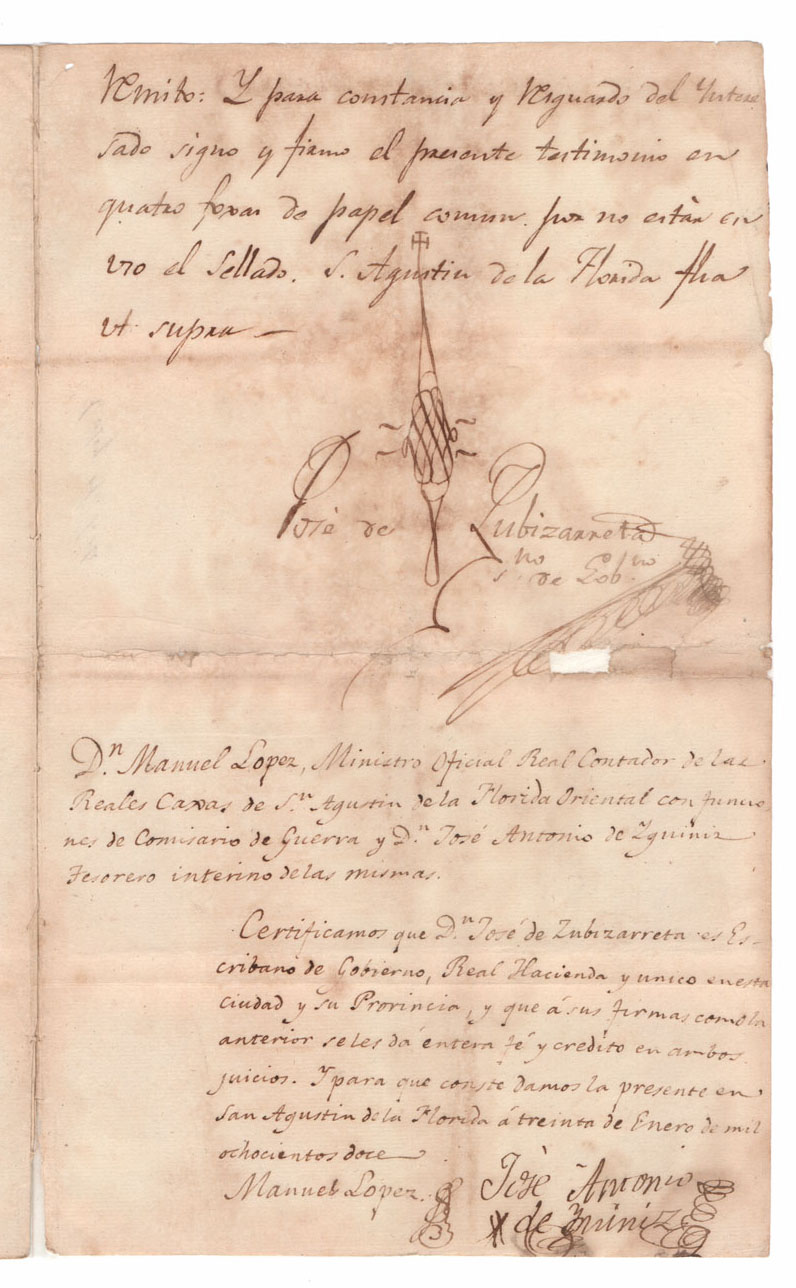 remito: Y para constancia y resguardo del Yntere
sado signo y firmo el presente testimonio en
quatro foxas de papel comun por no estàr en
uso el Sellado. S. Agustin de la Florida fha
ut supra —
José de Zubizarreta
S.no de Gob.no
D.n Manuel Lopez, Ministro Oficial Real Contador de las
Reales Caxas de S.n Agustin de la Florida Oriental con funcio-
nes de Comisario de Guerra y D.n José Antonio de Yguiniz
Tesorero interino de las mismas.
Certificamos que D.n José de Zubizarreta es Es-
cribano de Gobierno, Real Hacienda y unico en esta
ciudad y su Provincia, y que á sus firmas como la
anterior se les dá entera fé y credito en ambos
juicios. Y para que conste damos la presente en
San Agustin de la Florida á treinta de Enero de mil
ochocientos doce
Manuel Lopez. Josè Antonio
de Yguiniz